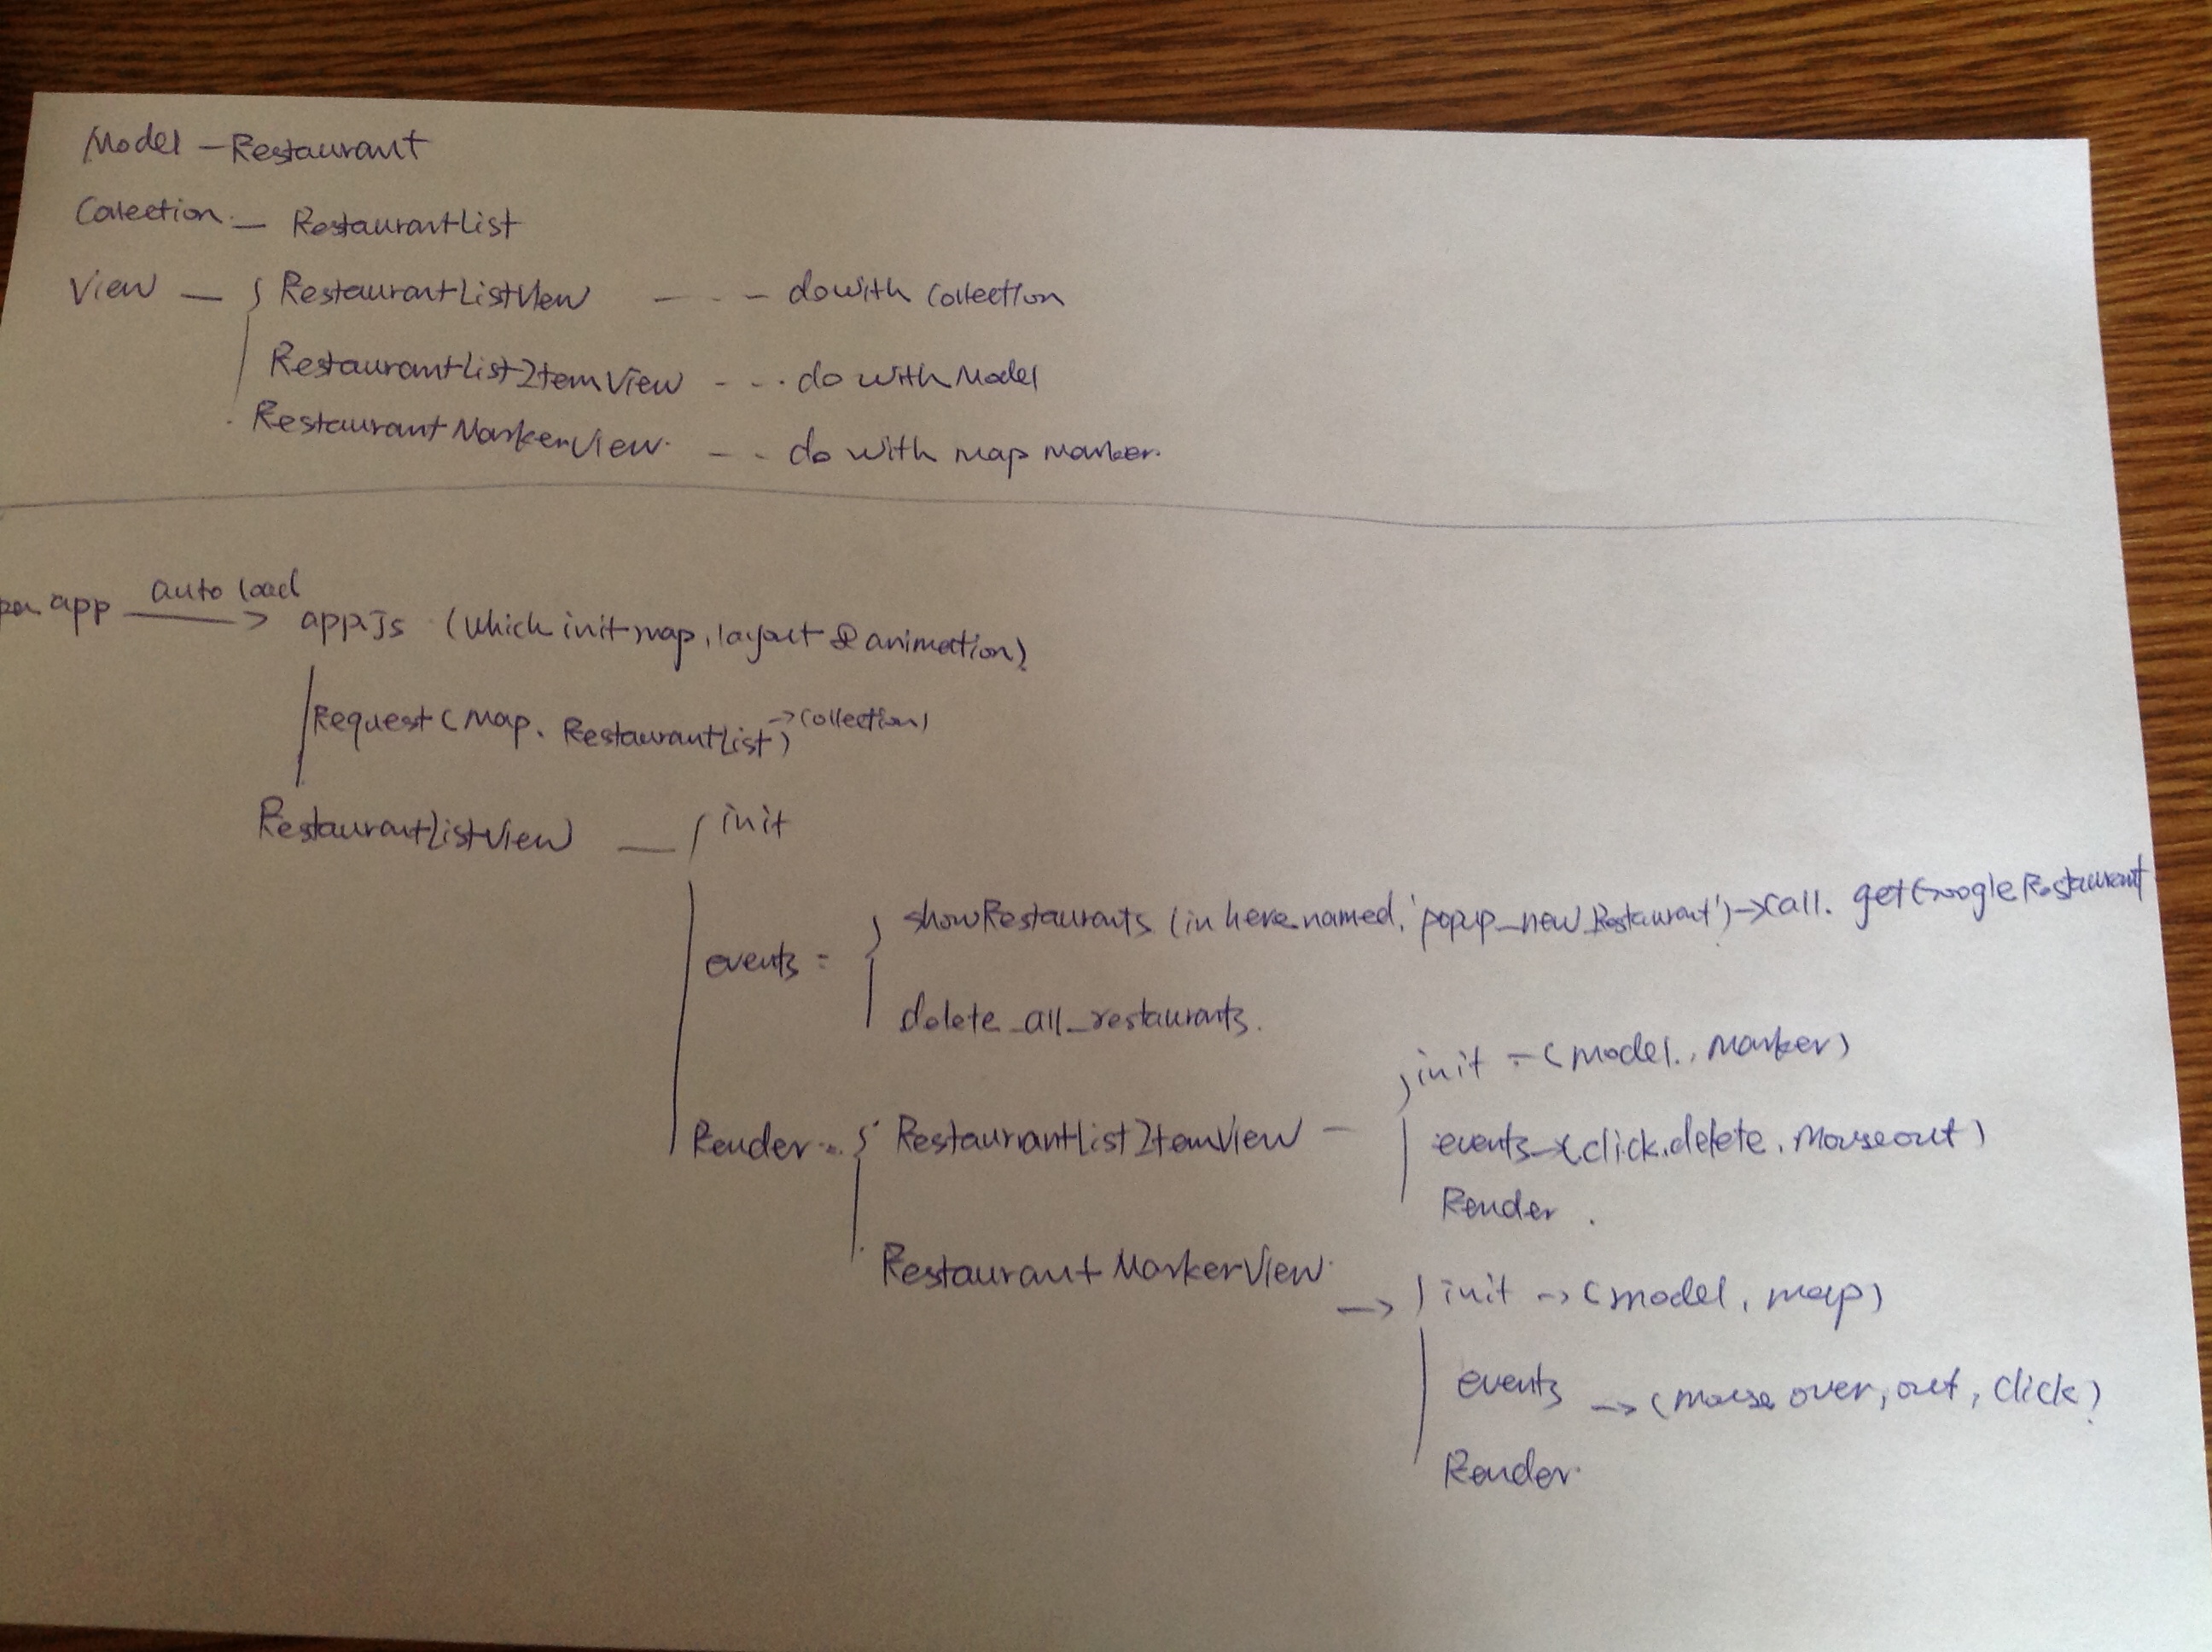 Model - Restaurant
Collection - RestaurantList
View - { RestaurantListView - - - do with Collection
RestaurantListItemView - - - do with Model
RestaurantMarkerView - - do with map marker.
app auto load → app.js (which init map, layout & animation)
Request (Map, RestaurantList) → Collection)
RestaurantListView — { init
events = { showRestaurants (in here named, 'popup_new_Restaurant') → call. getGoogleRestaurant
delete_all_restaurants.
Render - { RestaurantListItemView - { init - (model, Marker)
events → (click, delete, Mouseout)
Render.
RestaurantMarkerView → { init → (model, map)
events → (mouse over, out, click)
Render.